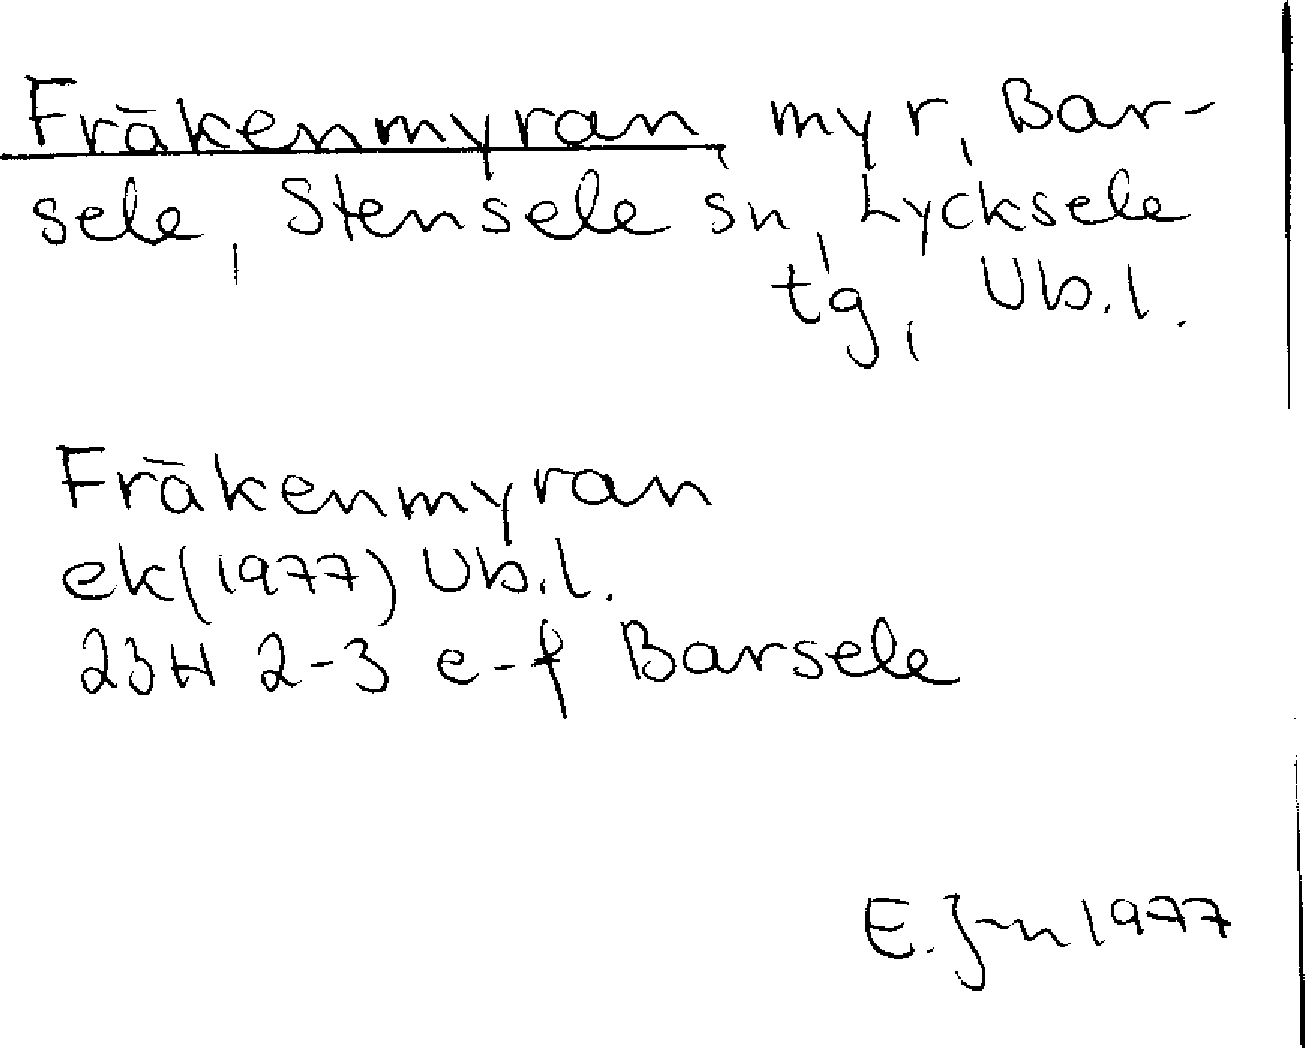 Fräkenmyran, myr, Bar-
sele, Stensele sn, Lycksele
tg, Vb.l.
Fräkenmyran
ek (1977) Vb.l.
23H 2-3 e-f Barsele
E. J-n 1977